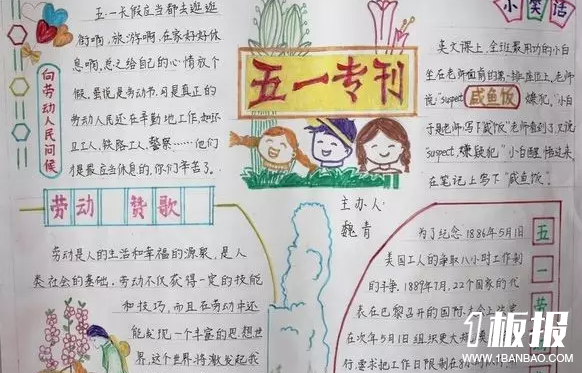 向劳动人民问候
五·一长假应当都去逛逛
街啊,旅游啊,在家好好休
息啊,总之给自己的心情放个
假,虽说是劳动节,可是真正的
劳动人民还在辛勤地工作,如环
卫工人,铁路工人,警察……他们
才是最应当休息的,你们辛苦了。
五一专刊
主办人:
魏青
小笑话
英文课上,全班最用功的小白
坐在老师面前的第一排座位上,老师
说"suspect,嫌犯,"小白
于是
咸鱼饭
老师看到了,又说
"suspect,嫌疑犯,"小白醒悟过来
在笔记上写下"咸鱼饭"。
劳动赞歌
劳动是人的生活和幸福的源泉,是人
类社会的基础,劳动不仅获得一定的技能
和技巧,而且在劳动中还
能发现一个丰富的思想世
界,这个世界将激发起我
五一劳
为了纪念1886年5月1日
美国工人的争取八小时工作制
的斗争,1889年7月,22个国家的代
表在巴黎召开的国际
在次年5月1日组织更大
行,要求把工作日限制在8小时
1板报
WWW.1BANBAO.COM